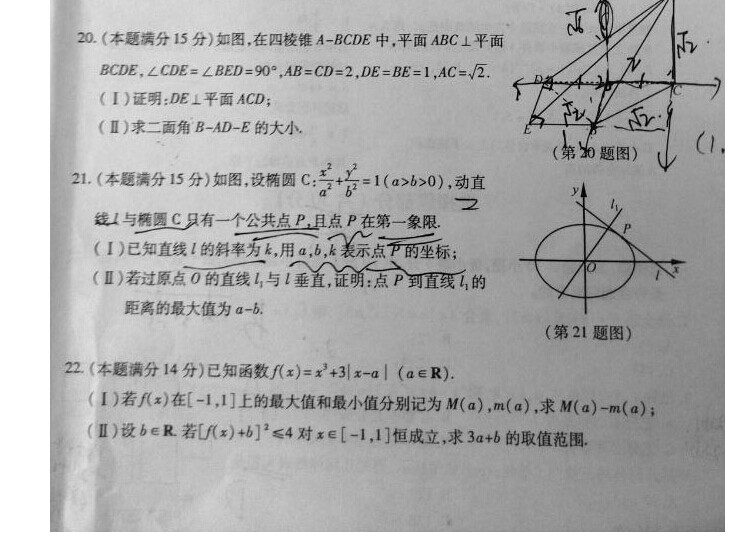 20. (本题满分 15 分)如图,在四棱锥 A-BCDE 中,平面 ABC⊥平面
BCDE,∠CDE=∠BED=90°,AB=CD=2,DE=BE=1,AC=√2.
(Ⅰ)证明:DE⊥平面 ACD;
(Ⅱ)求二面角 B-AD-E 的大小.
√6
√2
2
D
C
√2
√2
E
B
(1.
(第 20 题图)
21. (本题满分 15 分)如图,设椭圆 C:x²/a²+y²/b²=1(a>b>0),动直
线 l 与椭圆 C 只有一个公共点 P,且点 P 在第一象限.
(Ⅰ)已知直线 l 的斜率为 k,用 a,b,k 表示点 P 的坐标;
(Ⅱ)若过原点 O 的直线 l₁与 l 垂直,证明:点 P 到直线 l₁的
距离的最大值为 a-b.
y
l₁
P
O
l
x
(第 21 题图)
22. (本题满分 14 分)已知函数 f(x)=x³+3|x-a| (a∈R).
(Ⅰ)若 f(x)在[-1,1]上的最大值和最小值分别记为 M(a),m(a),求 M(a)-m(a);
(Ⅱ)设 b∈R.若[f(x)+b]²≤4 对 x∈[-1,1]恒成立,求 3a+b 的取值范围.